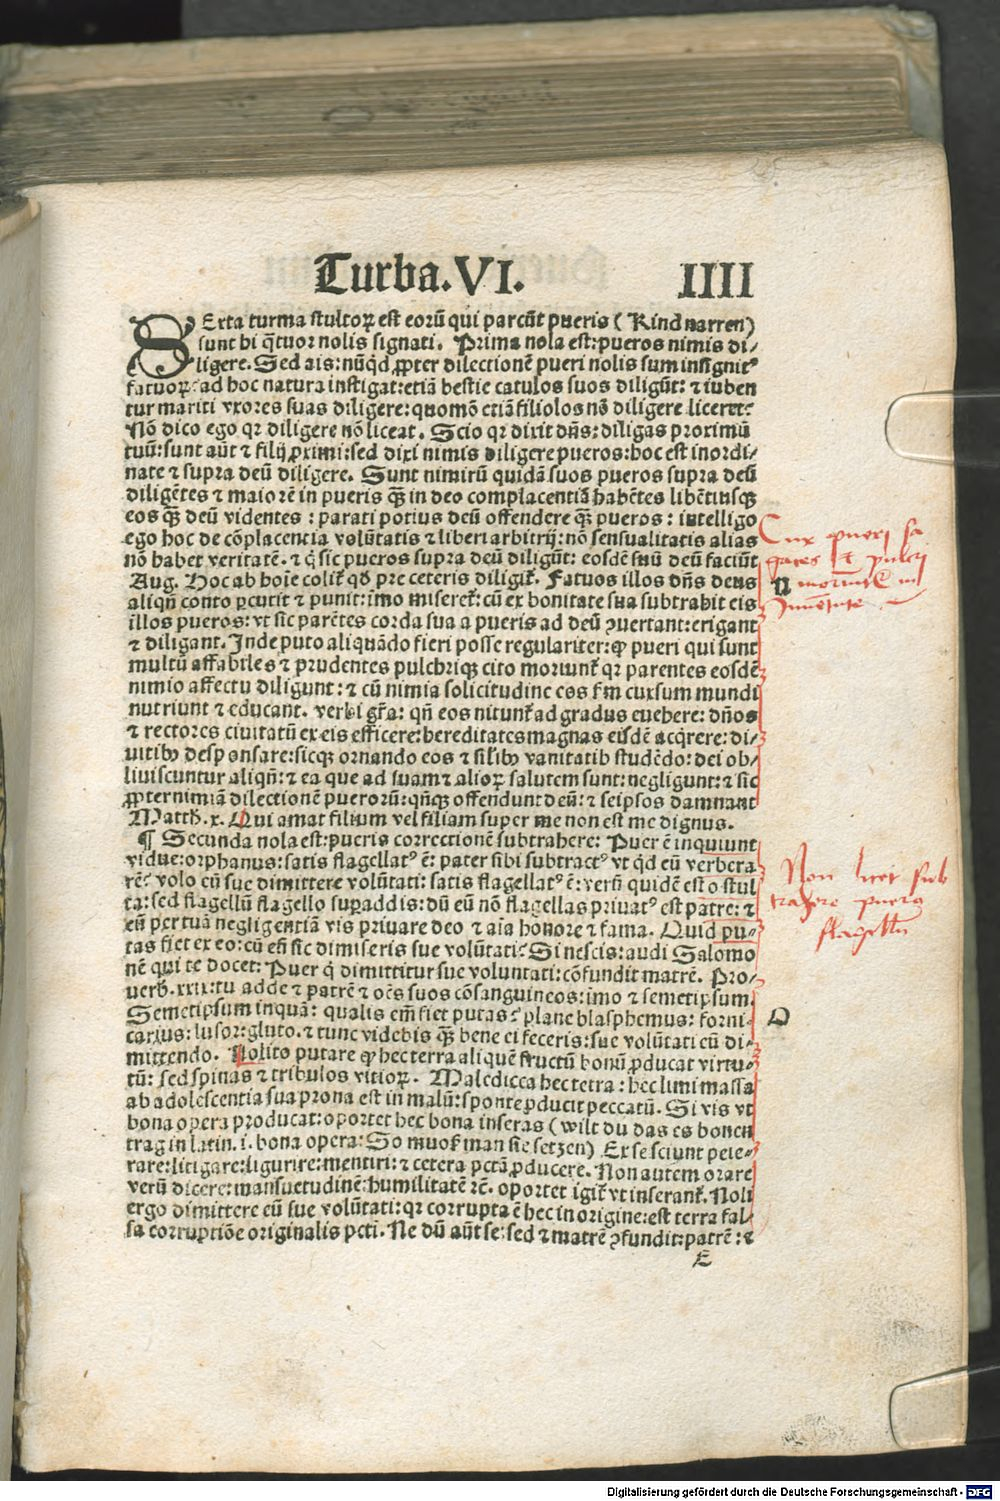 Turba.VI. IIII
SExta turma stultoꝝ est eorū qui parcūt pueris ( Kind narren)
sunt hi q̄tuor nolis signati. Prima nola est: pueros nimis di⸗
ligere. Sed ais: nūqd ꝓpter dilectionē pueri nolis sum insignitꝰ
fatuoꝝ: ad hoc natura instigat: etiā bestie catulos suos diligūt: ⁊ iuben
tur mariti vxores suas diligere: quomō etiā filiolos nō diligere liceret?
Nō dico ego qꝛ diligere nō liceat. Scio qꝛ dixit dn̄s: diligas proximū
tuū: sunt aūt ⁊ filij ꝓximi: sed dixi nimis diligere pueros: hoc est inordi⸗
nate ⁊ supra deū diligere. Sunt nimirū quidā suos pueros supra deū
diligētes ⁊ maiorē in pueris qꝫ̄ in deo complacentiā habētes libētiusqꝫ
eos qꝫ̄ deū videntes : parati potius deū offendere qꝫ̄ pueros : intelligo
ego hoc de cōplacencia volūtatis ⁊ liberi arbitrij: nō sensualitatis alias
nō habet veritatē. ⁊ q̇ sic pueros supra deū diligūt: eosdē suū deū faciūt
Aug. Hoc ab hoīe colit᷑ qd̄ pre ceteris diligit᷑. Fatuos illos dn̄s deus
aliqn̄ conto ꝑcutit ⁊ punit: īmo miseret᷑: cū ex bonitate sua subtrahit eis
illos pueros: vt sic parētes corda sua a pueris ad deū ꝯuertant: erigant
⁊ diligant. Inde puto aliquādo fieri posse regulariter: ꝙ pueri qui sunt
multū affabiles ⁊ prudentes pulchriqꝫ cito moriunt᷑ qꝛ parentes eosdē
nimio affectu diligunt: ⁊ cū nimia solicitudine eos ẜm cursum mundi
nutriunt ⁊ educant. verbi gr̄a: qn̄ eos nitunt᷑ ad gradus euehere: dn̄os
⁊ rectores ciuitatū ex eis efficere: hereditates magnas eisdē acq̇rere: di⸗
uitibꝰ desponsare: sicqꝫ ornando eos ⁊ silibꝰ vanitatib studēdo: dei ob⸗
liuiscuntur aliqn̄: ⁊ ea que ad suam ⁊ alioꝝ salutem sunt: negligunt: ⁊ sic
ꝓpter nimiā dilectionē puerorū: qn̄qꝫ offendunt deū: ⁊ seipsos damnant
Matth. x. Qui amat filium vel filiam super me non est me dignus.
¶ Secunda nola est: pueris correctionē subtrahere: Puer ē inquiunt
vidue: orphanus: satis flagellatꝰ ē: pater sibi subtractꝰ vt qd eū verbera
rē? volo cū sue dimittere volūtati: satis flagellatꝰ ē: verū quidē est o stul
ta: sed flagellū flagello suꝑaddis: dū eū nō flagellas priuatꝰ est patre: ⁊
eū per tuā negligentiā vis priuare deo ⁊ aīa honore ⁊ fama. Quid pu⸗
tas fiet ex eo: cū eū sic dimiseris sue volūtati? Si nescis: audi Salomo
nē qui te docet: Puer q̇ dimittitur sue voluntati: cōfundit matrē. Pro⸗
uerb. xxix: tu adde ⁊ patrē ⁊ oēs suos cōsanguineos: imo ⁊ semetipsum.
Semetipsum inquā: qualis em̄ fiet putas? plane blasphemus: forni⸗
carius: lusor: gluto. ⁊ tunc videbis qꝫ̄ bene ei feceris: sue volūtati eū di⸗
mittendo. Nolito putare ꝙ hec terra aliquē fructū bonū ꝓducat virtu⸗
tū: sed spinas ⁊ tribulos vitioꝝ. Maledicta hec terra: hec limi massa
ab adolescentia sua prona est in malū: sponte ꝓducit peccatū. Si vis vt
bona opera producat: oportet hec bona inseras ( wilt du das es bonen
trag in latin. i. bona opera: So muoſt man sie setzen) Ex se sciunt peie⸗
rare: litigare: ligurire: mentiri: ⁊ cetera pctā ꝓducere. Non autem orare
verū dicere: mansuetudinē: humilitatē ꝛc̄. oportet igit᷑ vt inserant᷑. Noli
ergo dimittere eū sue volūtati: qꝛ corrupta ē hec in origine: est terra fal⸗
sa corruptiōe originalis pcti. Ne dū aūt se: sed ⁊ matrē ꝯfundit: patrē: ⁊
E
Cur pueri sa
gaces et pulcri
moriunt᷑ in
Iuuētute
Non licet sub
trahere pueris
flagellū
O